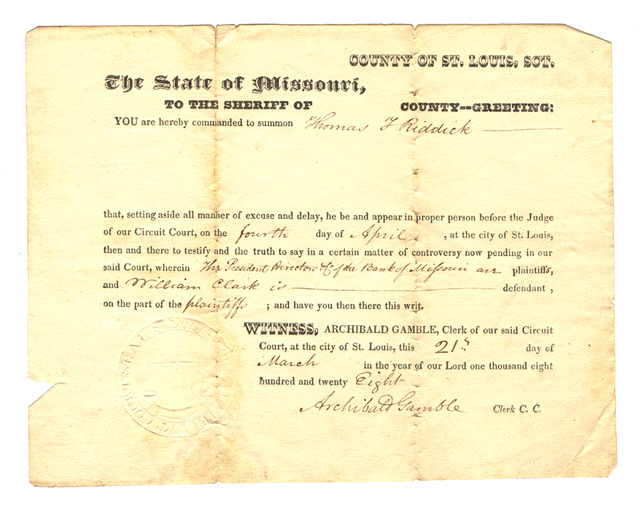 COUNTY OF ST. LOUIS, SCT.
The State of Missouri,
TO THE SHERIFF OF COUNTY--GREETING:
YOU are hereby commanded to summon Thomas F Riddick
that, setting aside all manner of excuse and delay, he be and appear in proper person before the Judge
of our Circuit Court, on the fourth day of April , at the city of St. Louis,
then and there to testify and the truth to say in a certain matter of controversy now pending in our
said Court, wherein The President Directors &c of the Bank of Missouri are plaintiffs,
and William Clark is defendant ,
on the part of the plaintiffs ; and have you then there this writ.
WITNESS, ARCHIBALD GAMBLE, Clerk of our said Circuit
Court, at the city of St. Louis, this 21st day of
March in the year of our Lord one thousand eight
hundred and twenty Eight
Archibald Gamble Clerk C. C.